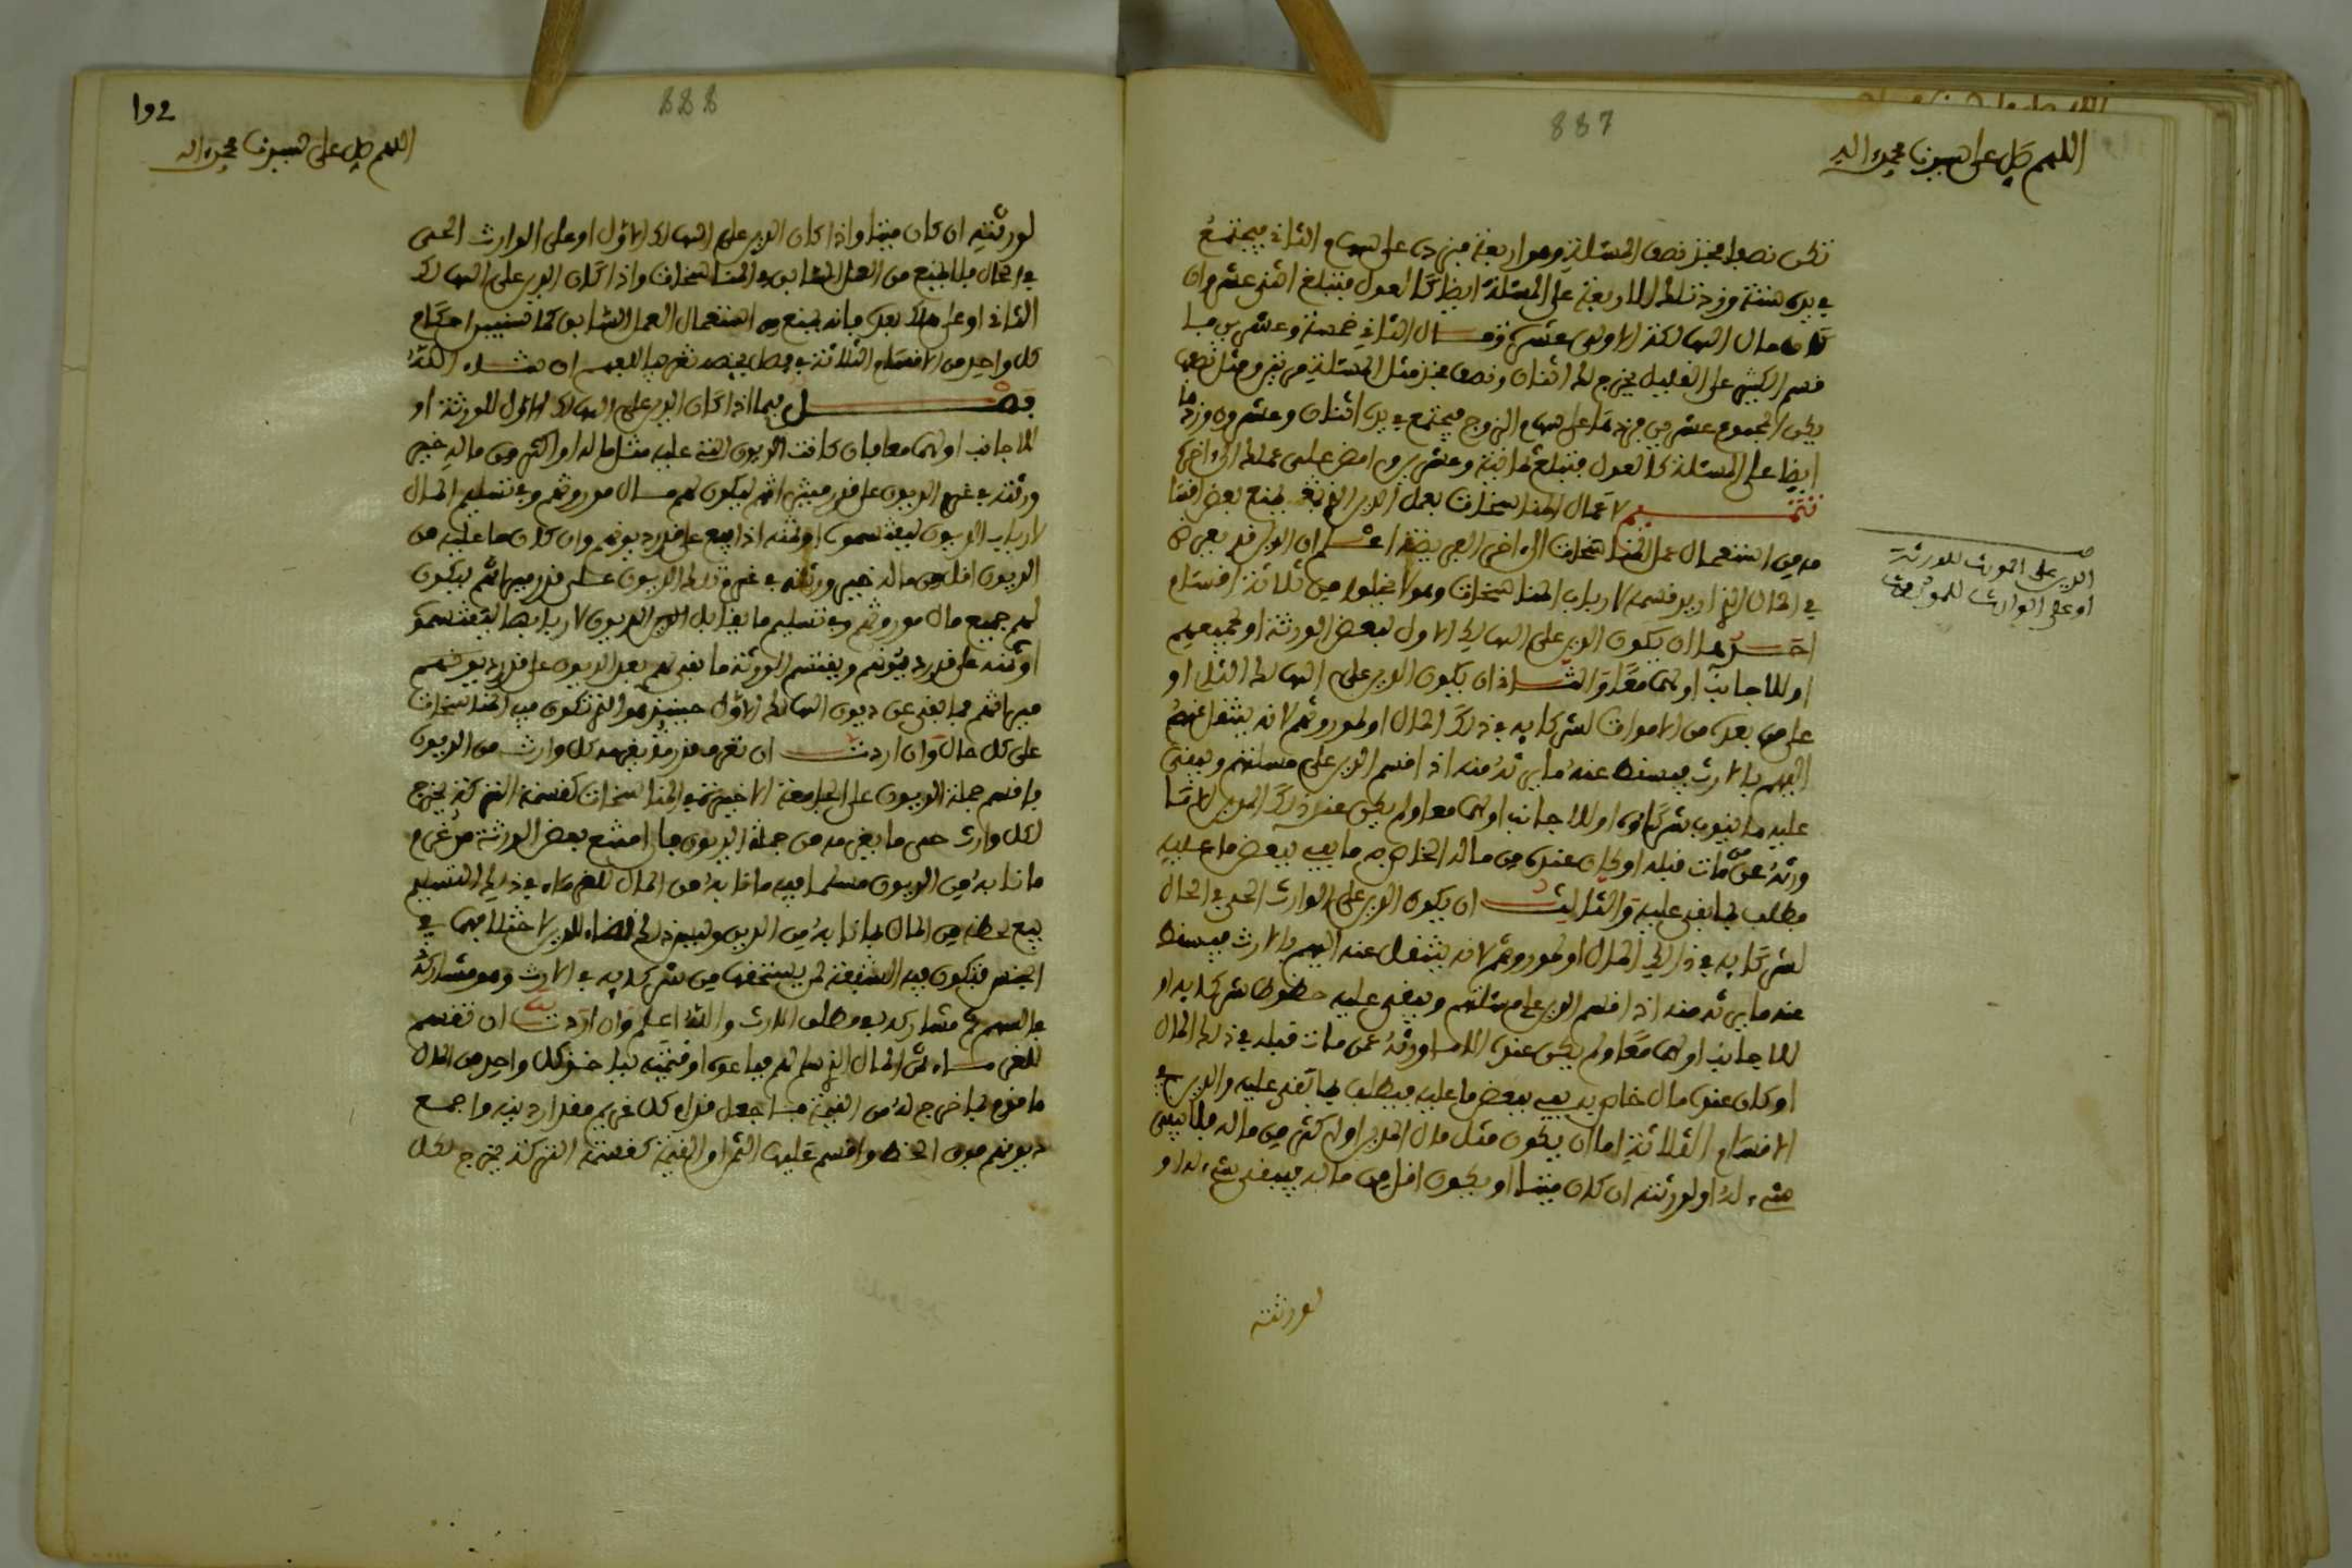 887
اللهم صل على سيدنا محمد واله
تكن نصبا فجز نصف المسئلة وهو اربعة فيزدى على سهام الثاني فيجتمع
في يده ستة وزد تلك الاربعة على المسئلة ايضا كالعول فتبلغ اثنى عشر وان
كان مال الهالكة الاولى عشرة ومال الثاني خمسة وعشرين فا
قسم الكثير على القليل يخرج لك اثنان ونصف فجز مثل المسئلة مرتين ومثل نصفها
يكن المجموع عشرين فزدها على سهام الزوج فيجتمع في يده اثنان وعشرون وزدها
ايضا على المسئلة كالعول فتبلغ ثمانية وعشرين وامض على عملك الى اخره
تتميم لاعمال المناسخات بعمل الدين الذي يمنع بعض اقسا
مه من استعمال عمل المناسخات الى اخر الفريضة اعلم ان الدين قد يعرض
في المال الذي اريد قسمه لارباب المناسخات وهو لا يخلوا من ثلاثة اقسام
احدها ان يكون الدين على الهالك الاول لبعض الورثة او لجميعهم
او للاجانب او لهما معا والثاني ان يكون الدين على الهالك الثاني او
على من بعده من الاموات لشركايه في ذلك المال او لموروثهم لانه ينتقل عنهم
اليهم بالارث فيسقط عنه ما يرثه منه اذا قسم الدين على مسئلتهم ويبقى
عليه ما ينوب شركاءه او للاجانب او لهما معا ولم يكن عنده ذلك المدين الا ما
ورثه عن من مات قبله او كان عنده من ماله الخاص به ما يفي ببعض ما عليه
فطلب بما بقي عليه والثالث ان يكون الدين على الوارث الحي في الحال
لشركايه في ذلك المال او لموروثهم لانه ينتقل عنه اليهم بالارث فيسقط
عنه ما يرثه منه اذا قسم الدين على مسئلتهم ويبقى عليه حظوظ شركايه او
للاجانب او لهما معا ولم يكن عنده الا ما ورثه عمن مات قبله في ذلك المال
او كان عنده مال خاص به يفي ببعض ما عليه فيطلب بما بقي عليه والدين في
الاقسام الثلاثة اما ان يكون مثل مال المدين او اكثر من ماله فلا يبقى
شيء له او لورثته ان كان ميتا او يكون اقل من ماله فيبقى شيء له او
لورثته
الدين على الموروث للورثة
او على الوارث للموروث
888
192
اللهم صل على سيدنا محمد واله
لورثته ان كان ميتا واذا كان الدين على الهالك الاول او على الوارث الحي
في الحال فلا يمنع من العمل السابق في المناسخات واذا كان الدين على الهالك
الثاني او على من بعده فانه يمنع من استعمال العمل السابق كما ستبين احكام
كل واحد من الاقسام الثلاثة في فصل يخصه تقريبا للفهم ان شاء الله
فصل فيما اذا كان الدين على الهالك الاول للورثة او
للاجانب او لهما معا فان كانت الديون التي عليه مثل ماله او اكثر من ماله خير
ورثته في غرم الديون على قدر ميراثهم ليكون لهم مال موروثهم وفي تسليم المال
لارباب الديون ليقتسموه او ثمنه اذا بيع على قدر ديونهم وان كان ما عليه من
الديون اقل من ماله خير ورثته في غرم تلك الديون على قدر ميراثهم ليكون
لهم جميع مال موروثهم وفي تسليم ما يقابل الدين الديون لاربابها ليقتسموه
او ثمنه على قدر ديونهم ويقتسم الورثة ما بقي لهم بعد الديون على قدر
ميراثهم فما بقي عن ديون الهالك الاول حينئذ هو الذي تكون فيه المناسخات
على كل حال وان اردت ان تعرف قدر ما يغرمه كل وارث من الديون
فاقسم جملة الديون على الجامعة الاخيرة في المناسخات كقسمة التركة يخرج
لكل وارث حي ما يغرمه من جملة الديون فان امتنع بعض الورثة من غرم
ما نابه من الديون مسلما فيه ما نابه من المال للغرماء في ذلك التسليم
بيع لحظه من المال بما نابه من الدين وليس ذلك قضاء للدين لاختلافهما في
الجنس فتكون فيه الشفعة لمن يستحقها من شركايه في الارث وهو مشاركه
في السهم ثم مشاركه في مطلق الارث والله اعلم وان اردت ان تقسم
للغرماء ثمن المال الذي سلم لهم فباعوه او قيمته فياخذ كل واحد من المال
ما قوم بما خرج له من القيمة فاجعل قدام كل غريم مقدار دينه واجمع
ديونهم فوق الخط واقسم عليها الثمن او القيمة كقسمة التركة يخرج لكل